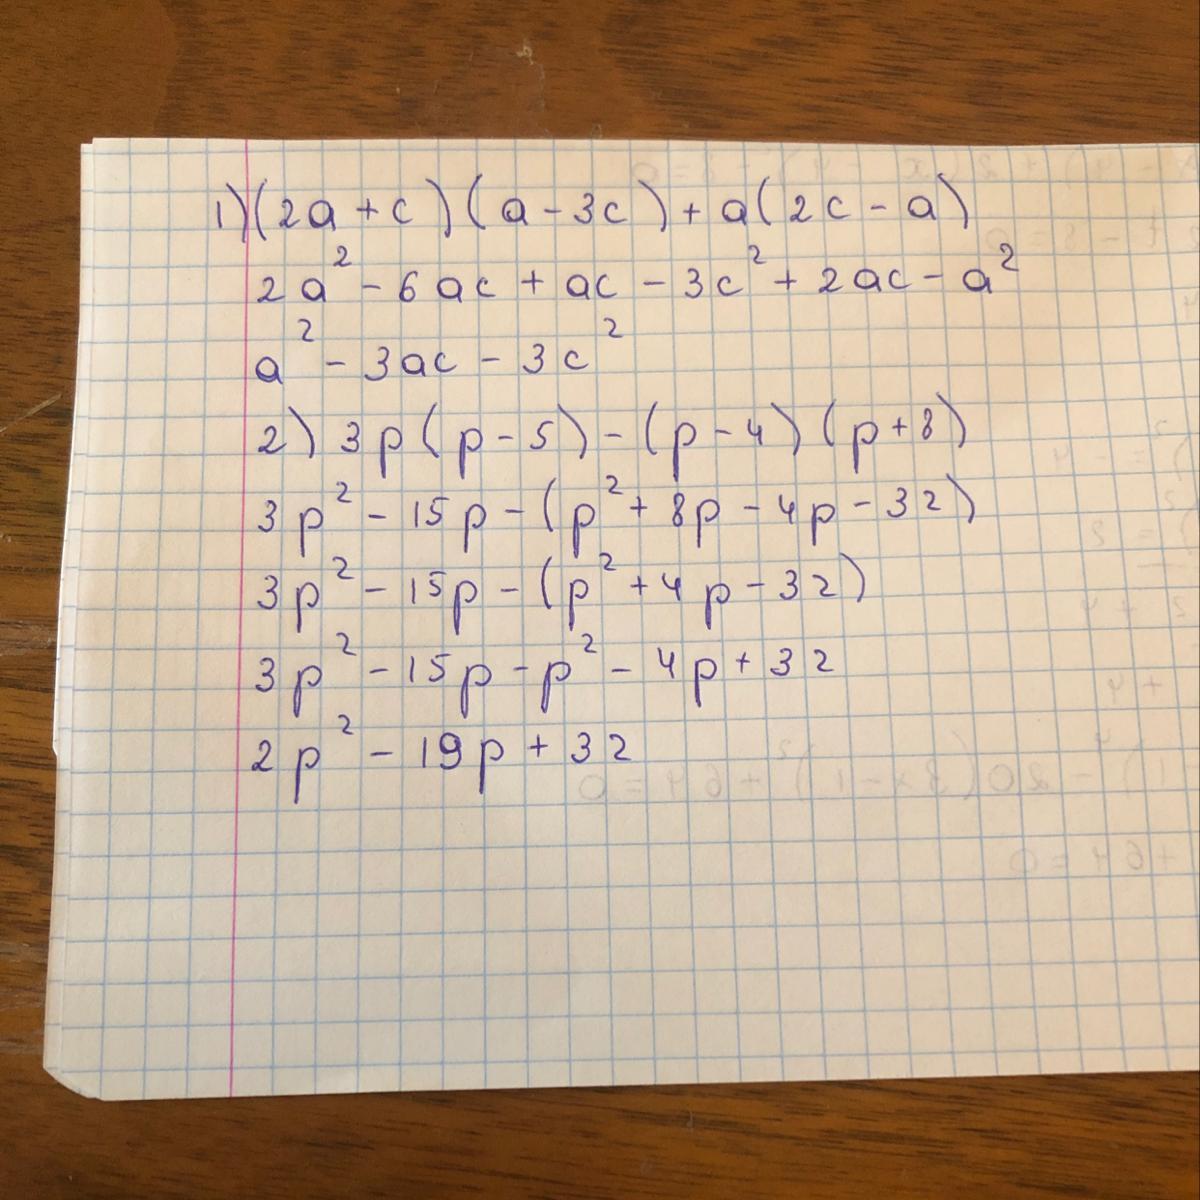 1) (2a + c) (a - 3c) + a (2c - a)
2a² - 6ac + ac - 3c² + 2ac - a²
a² - 3ac - 3c²
2) 3p (p - 5) - (p - 4) (p + 8)
3p² - 15p - (p² + 8p - 4p - 32)
3p² - 15p - (p² + 4p - 32)
3p² - 15p - p² - 4p + 32
2p² - 19p + 32